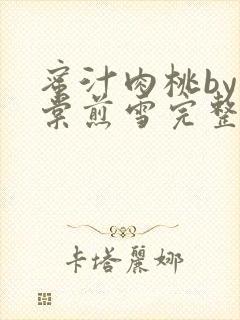 蜜汁肉桃by
棠煎雪完整
卡塔麗娜